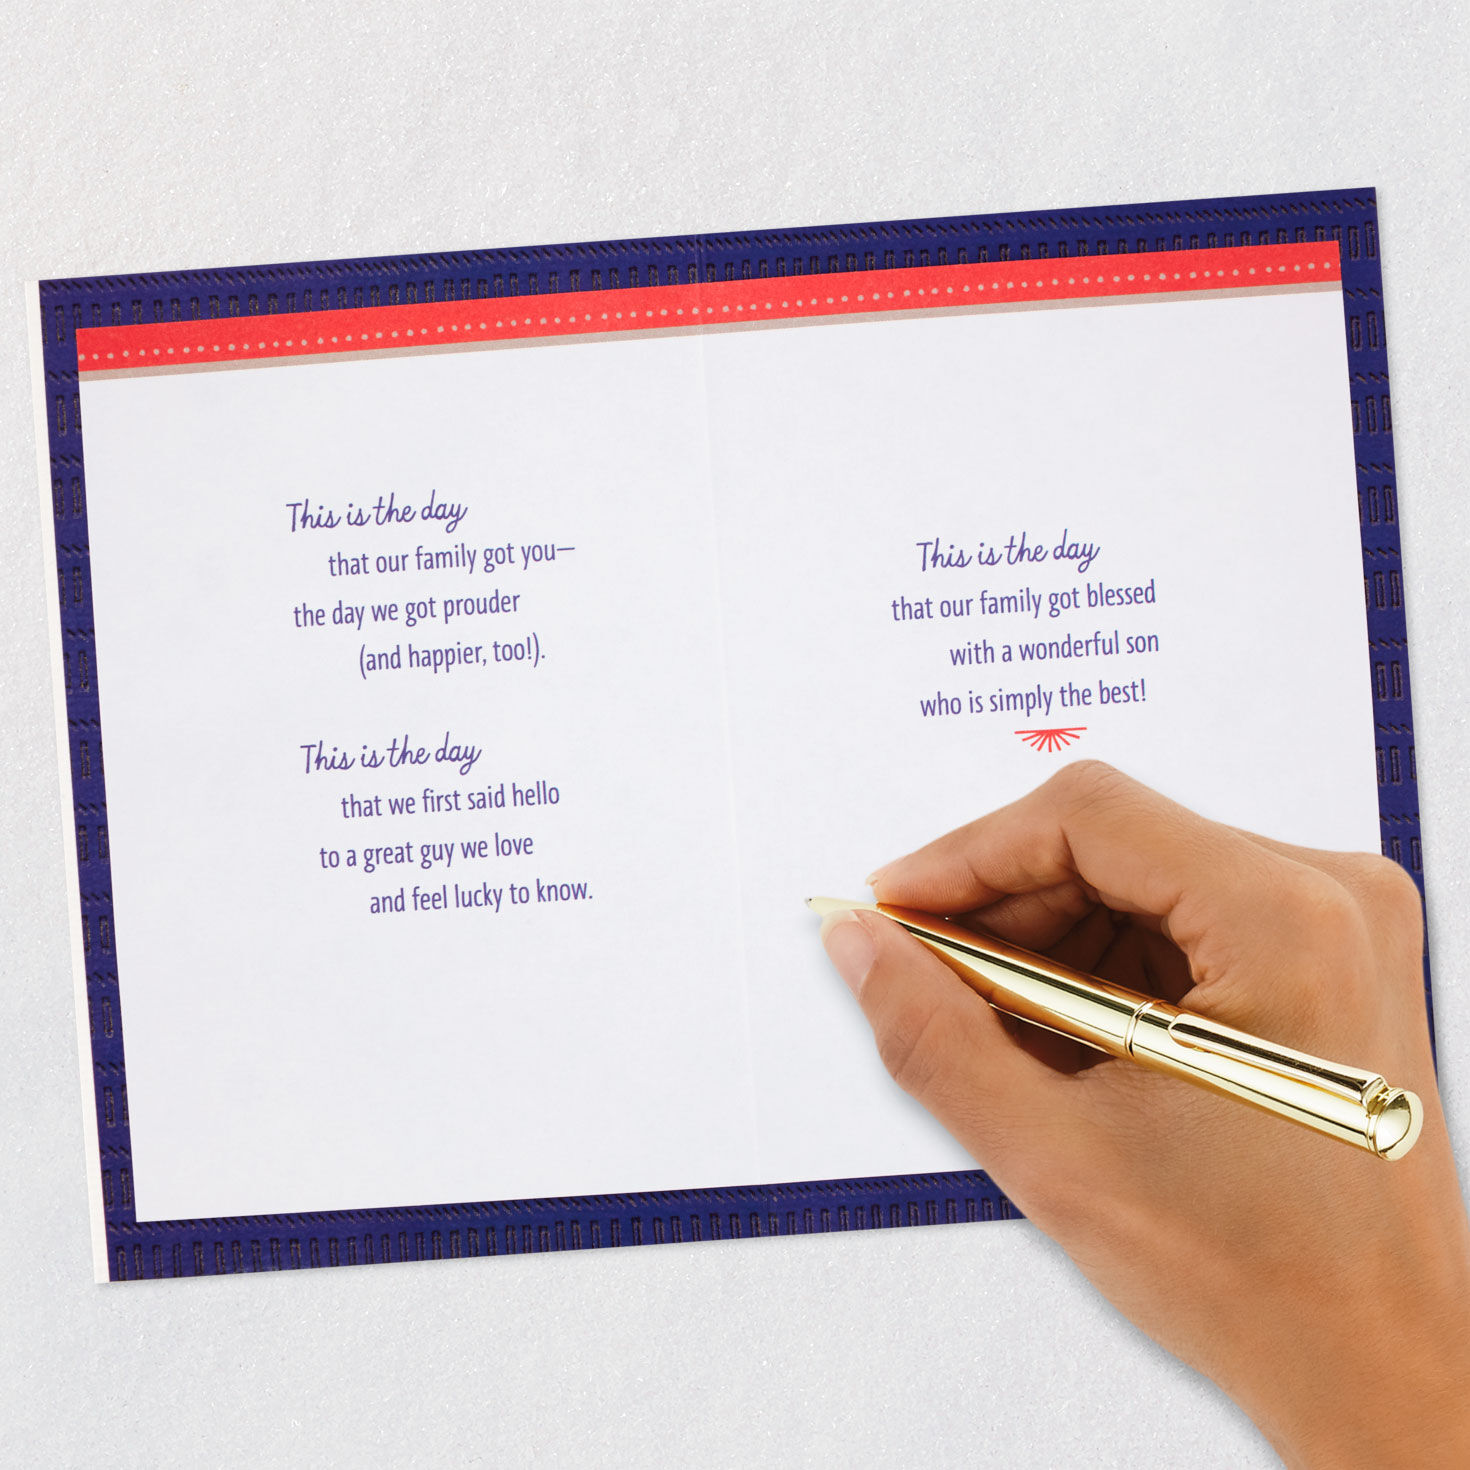 This is the day
that our family got you—
the day we got prouder
(and happier, too!).
This is the day
that we first said hello
to a great guy we love
and feel lucky to know.
This is the day
that our family got blessed
with a wonderful son
who is simply the best!